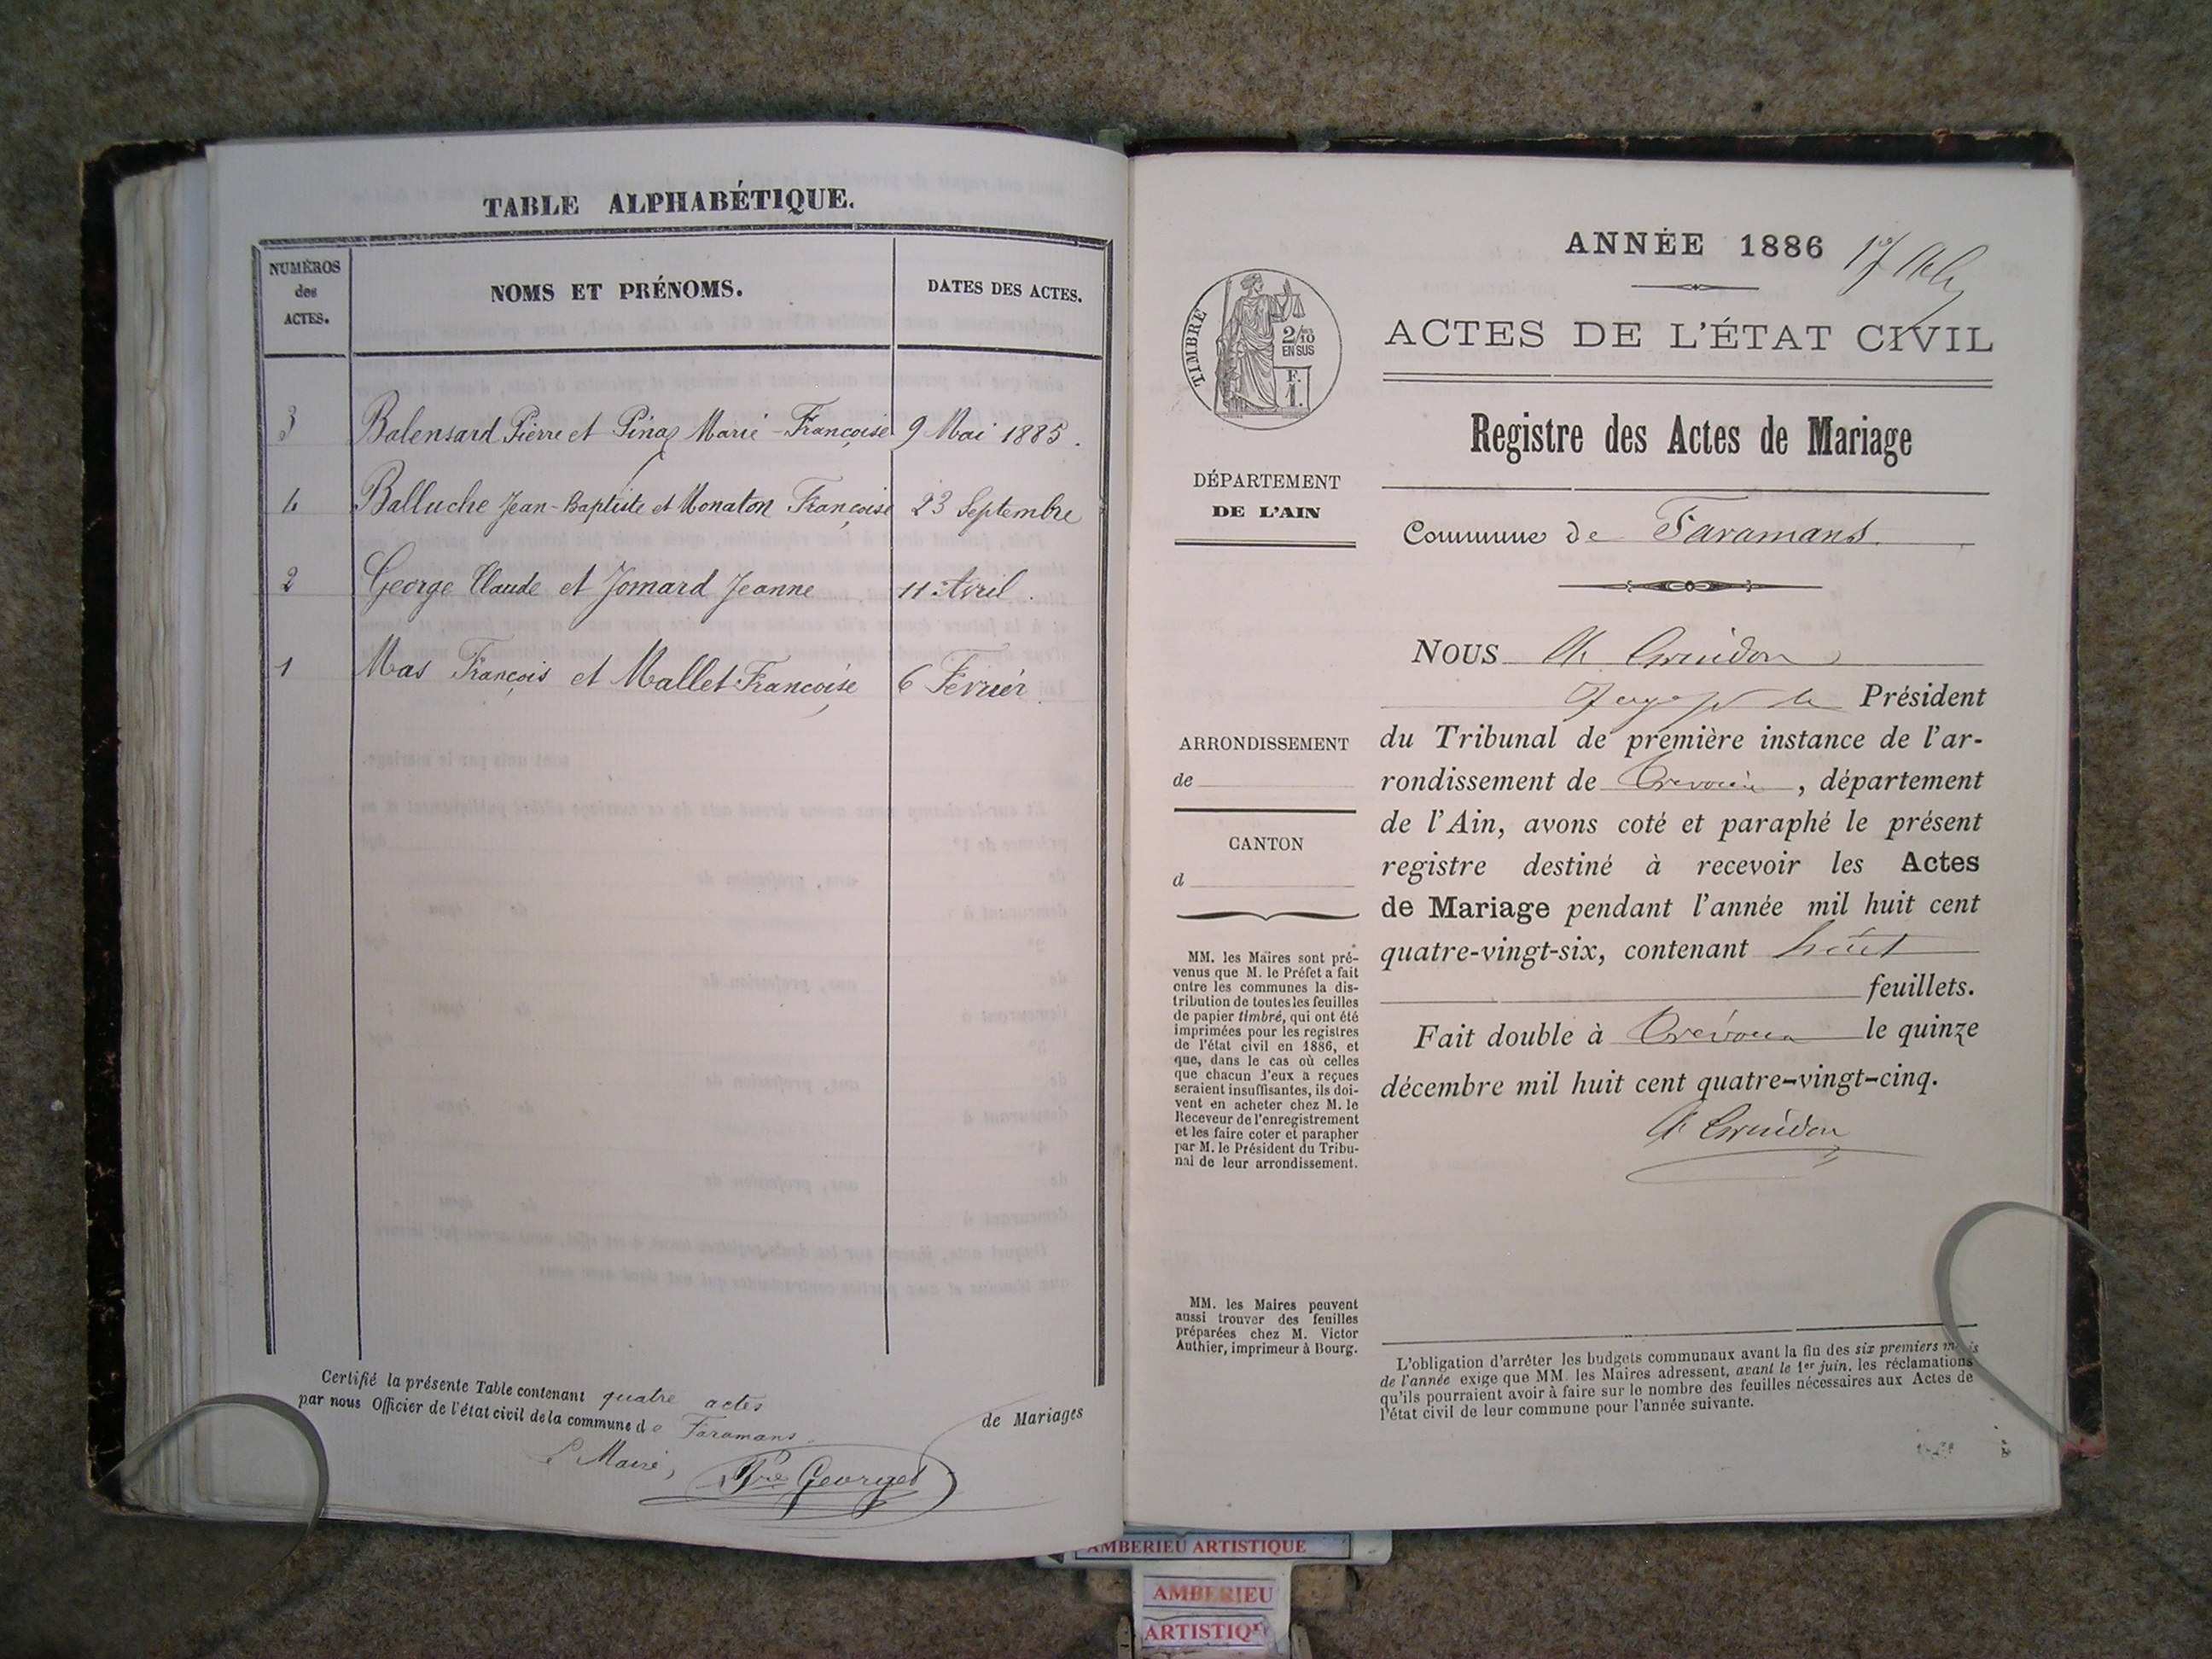 TABLE ALPHABÉTIQUE.
NUMÉROS
des
ACTES.
NOMS ET PRÉNOMS.
DATES DES ACTES.
3 Balensard Pierre et Pinaz Marie-Françoise 9 Mai 1885.
4 Balluche Jean-Baptiste et Monaton Françoise 23 Septembre
2 George Claude et Jomard Jeanne 11 Avril.
1 Mas François et Mallet Françoise 6 Février
Certifié la présente Table contenant quatre actes de Mariages
par nous Officier de l'état civil de la commune de Faramans.
Le Maire,
Georget
ANNÉE 1886
TIMBRE
2/10
EN SUS
F.
1.
ACTES DE L'ÉTAT CIVIL
Registre des Actes de Mariage
DÉPARTEMENT
DE L'AIN
Commune de Faramans.
NOUS Guidon
Juge Président
ARRONDISSEMENT
de
CANTON
d
du Tribunal de première instance de l'ar-
rondissement de Trévoux, département
de l'Ain, avons coté et paraphé le présent
registre destiné à recevoir les Actes
de Mariage pendant l'année mil huit cent
quatre-vingt-six, contenant huit
feuillets.
Fait double à Trévoux le quinze
décembre mil huit cent quatre-vingt-cinq.
Guidon
MM. les Maires sont pré-
venus que M. le Préfet a fait
entre les communes la dis-
tribution de toutes les feuilles
de papier timbré, qui ont été
imprimées pour les registres
de l'état civil en 1886, et
que, dans le cas où celles
que chacun d'eux a reçues
seraient insuffisantes, ils doi-
vent en acheter chez M. le
Receveur de l'enregistrement
et les faire coter et parapher
par M. le Président du Tribu-
nal de leur arrondissement.
MM. les Maires peuvent
aussi trouver des feuilles
préparées chez M. Victor
Authier, imprimeur à Bourg.
L'obligation d'arrêter les budgets communaux avant la fin des six premiers mois
de l'année exige que MM. les Maires adressent, avant le 1er juin, les réclamations
qu'ils pourraient avoir à faire sur le nombre des feuilles nécessaires aux Actes de
l'état civil de leur commune pour l'année suivante.
AMBERIEU ARTISTIQUE
AMBERIEU
ARTISTIQUE